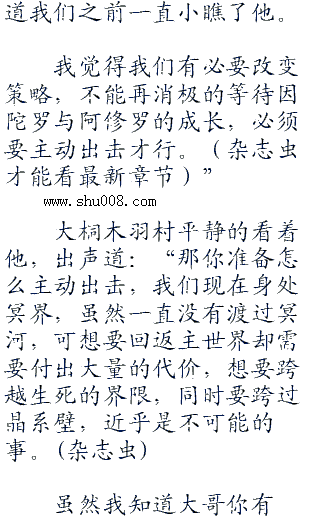 道我们之前一直小瞧了他。
我觉得我们有必要改变
策略，不能再消极的等待因
陀罗与阿修罗的成长，必须
要主动出击才行。（杂志虫
才能看最新章节）”
www.shu008.com
大桐木羽村平静的看着
他，出声道：“那你准备怎
么主动出击，我们现在身处
冥界，虽然一直没有渡过冥
河，可想要回返主世界却需
要付出大量的代价，想要跨
越生死的界限，同时要跨过
晶系壁，近乎是不可能的
事。(杂志虫)
虽然我知道大哥你有